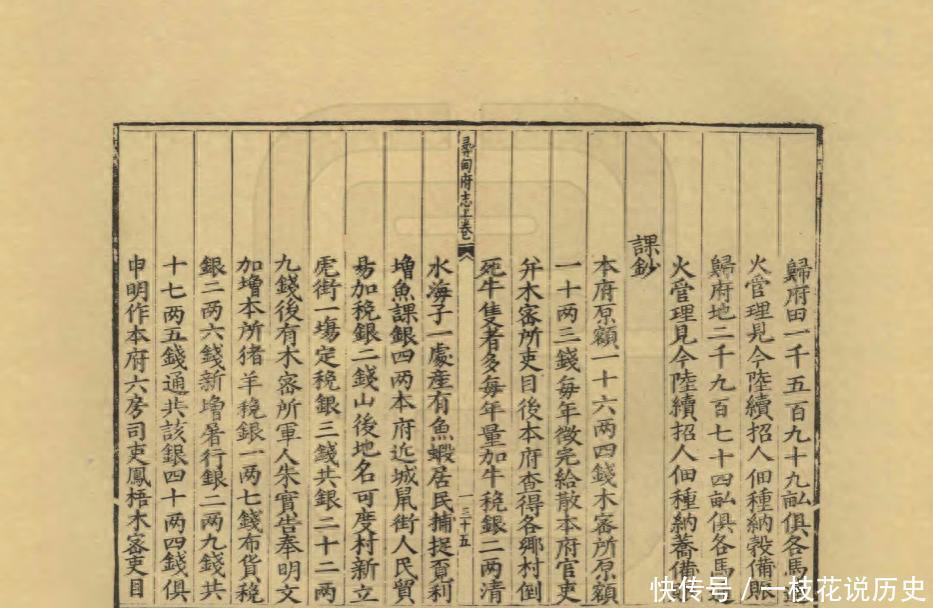 歸府田一千五百九十九畝俱各馬
火管理見今陸續招人佃種納穀備賑
歸府地二千九百七十四畝俱各馬
火管理見今陸續招人佃種納蕎備
課鈔
本府原額一十六两四錢木密所原額
一十两三錢每年徵完給散本府官吏
并木密所吏目後本府查得各鄉村倒
死牛隻者多每年量加牛稅銀二两清
水海子一處産有魚蝦居民捕捉覓利
增魚課銀四两本府近城鼠街人民貿
昜加稅銀二錢山後地名可度村新立
虎街一塲定稅銀三錢共銀二十二两
九錢後有木密所軍人朱實告奉明文
加增本所猪羊稅銀一两七錢布貨稅
銀二两六錢新增署行銀二两九錢共
十七两五錢通共該銀四十两四錢俱
申明作本府六房司吏鳳梧木密吏目
尋甸府志上卷
三十五
快传号 / 一枝花说历史